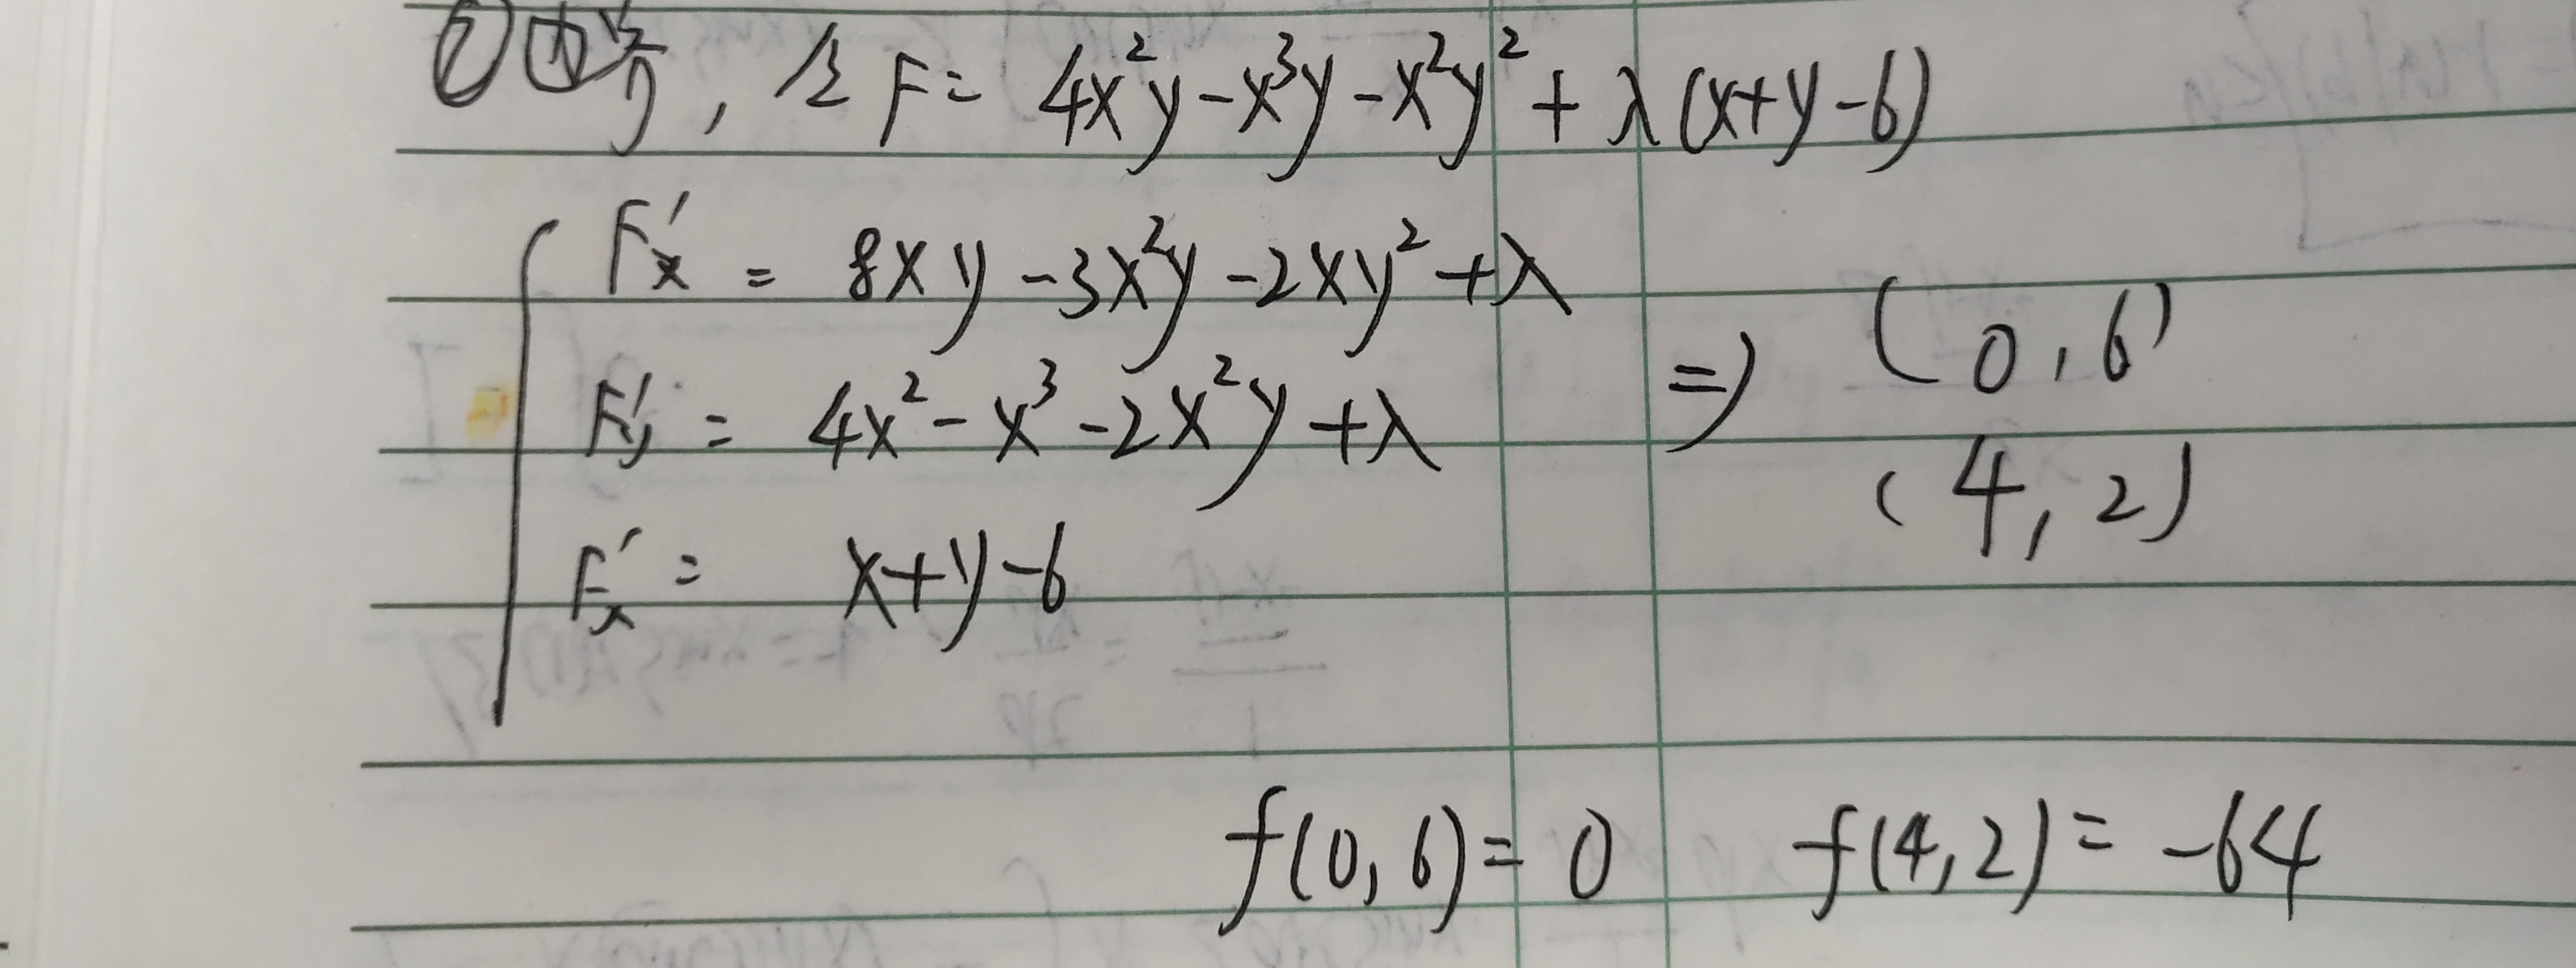 ② 边界, 令 F = 4x²y - x³y - x²y² + λ(x+y-6)
F'x = 8xy - 3x²y - 2xy² + λ
⇒ (0, 6)
F'y = 4x² - x³ - 2x²y + λ
(4, 2)
F'λ = x+y-6
f(0, 6) = 0 f(4, 2) = -64